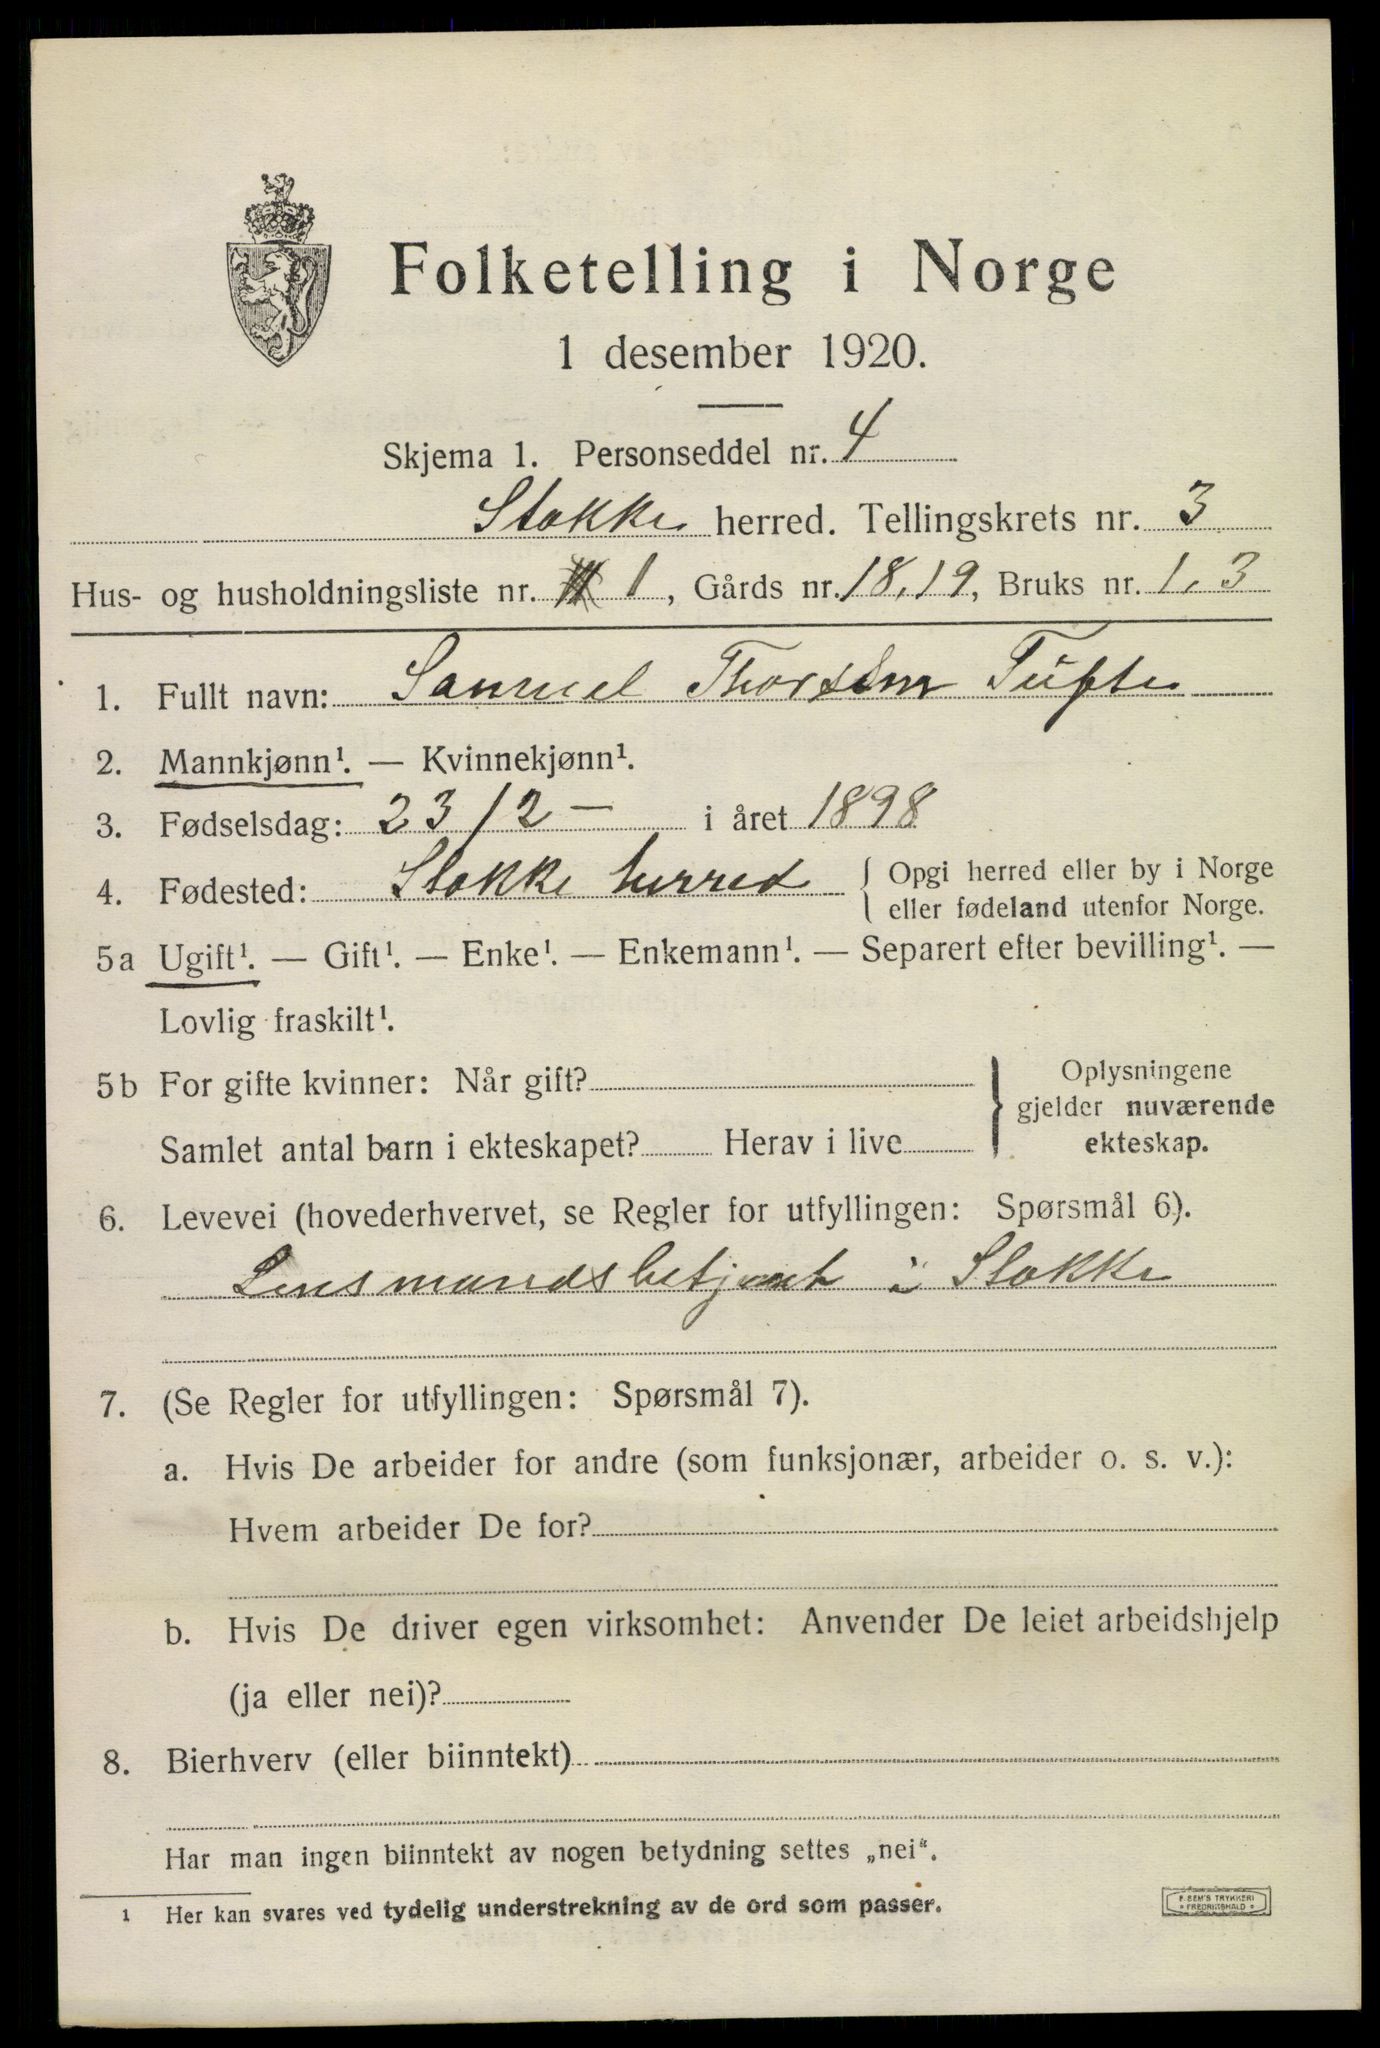 Folketelling i Norge
1 desember 1920.
Skjema 1. Personseddel nr. 4
Stokke herred. Tellingskrets nr. 3
Hus- og husholdningsliste nr. 1, Gårds nr. 18,19, Bruks nr. 1,3
1. Fullt navn: Samuel Thorsen Tufte
2. Mannkjønn¹. — Kvinnekjønn¹.
3. Fødselsdag: 23/2 — i året 1898
4. Fødested: Stokke herred { Opgi herred eller by i Norge
eller fødeland utenfor Norge.
5a Ugift¹. — Gift¹. — Enke¹. — Enkemann¹. — Separert efter bevilling¹. —
Lovlig fraskilt¹.
5b For gifte kvinner: Når gift?
Samlet antal barn i ekteskapet? Herav i live
} Oplysningene
gjelder nuværende
ekteskap.
6. Levevei (hovederhvervet, se Regler for utfyllingen: Spørsmål 6).
Lensmandsbetjent i Stokke
7. (Se Regler for utfyllingen: Spørsmål 7).
a. Hvis De arbeider for andre (som funksjonær, arbeider o. s. v.):
Hvem arbeider De for?
b. Hvis De driver egen virksomhet: Anvender De leiet arbeidshjelp
(ja eller nei)?
8. Bierhverv (eller biinntekt)
Har man ingen biinntekt av nogen betydning settes „nei“.
1 Her kan svares ved tydelig understrekning av de ord som passer.
F. SEM'S TRYKKERI
* FREDRIKSHALD *